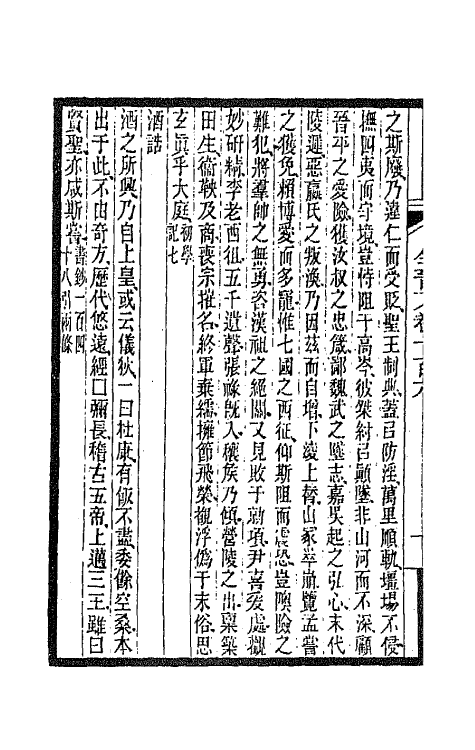 之斯廢乃違仁而受貶聖王制典蓋㠯防淫萬里順軌疆埸不侵
撫四夷而守境豈恃阻于高岑彼桀紂㠯顚墜非山河而不深顧
晉平之愛險獲汝叔之忠箴鄙魏武之墮志嘉吳起之弘心末代
陵遲惡嬴氏之叛渙乃因兹而自增下凌上替山冢崒崩覽孟嘗
之獲免賴博愛而多寵惟七國之西征仰斯阻而震恐豈隩險之
難犯將羣帥之無勇咨漢祖之絕關又見敗于勍項尹喜爰處觀
妙研精李老西徂五千遺聲張祿旣入穰侯乃傾營陵之出稟築
田生衞鞅及商喪宗摧名終軍棄繻擁節飛榮觀浮僞于末俗思
玄眞乎大庭初學記七
酒誥
酒之所興乃自上皇或云儀狄一曰杜康有飯不盡委餘空桑本
出于此不由奇方歷代悠遠經囗彌長稽古五帝上邁三王雖曰
賢聖亦咸斯嘗書鈔一百四十八引兩條